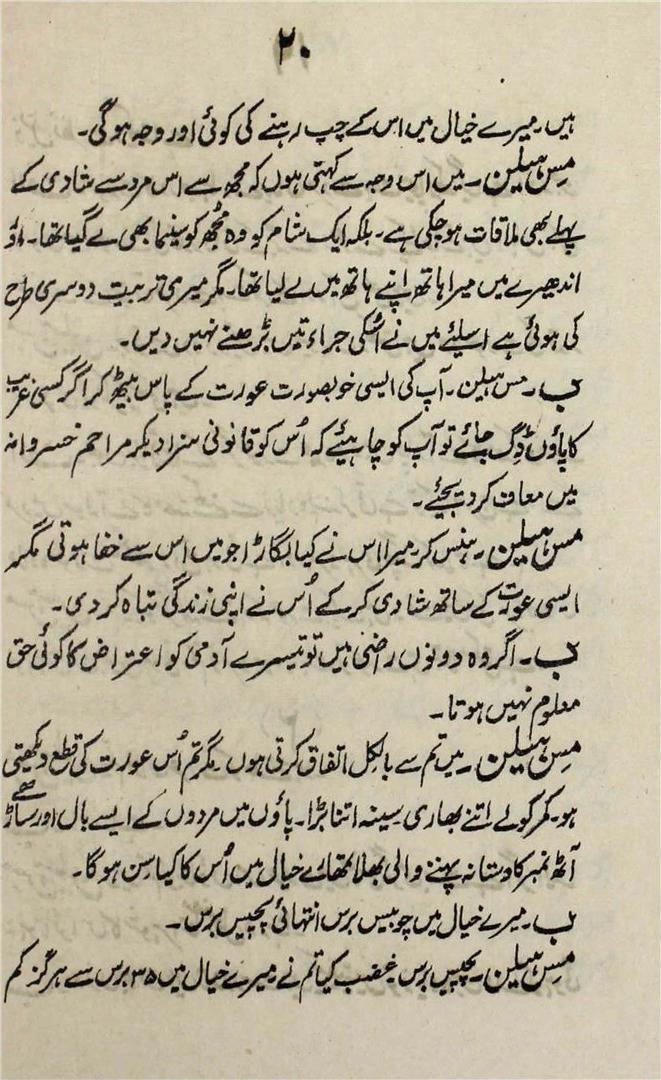 ۲۰
ہیں۔ میرے خیال میں اس کے چپ رہنے کی کوئی اور وجہ ہوگی۔
مس ہیلن۔ میں اس وجہ سے کہتی ہوں کہ مجھ سے اس مرد سے شادی کے
پہلے بھی ملاقات ہوچکی ہے۔ بلکہ ایک شام کو وہ مجھ کو سینما بھی لے گیا تھا۔ اور
اندھیرے میں میرا ہاتھ اپنے ہاتھ میں لے لیا تھا۔ مگر میری تربیت دوسری طرح
کی ہوئی ہے اسلئے میں نے اسکی جراءتیں بڑھنے نہیں دیں۔
ب۔ مس ہیلن۔ آپ کی ایسی خوبصورت عورت کے پاس بیٹھ کر اگر کسی غریب
کا پاؤں ڈِگ جائے تو آپ کو چاہیئے کہ اُس کو قانونی سزا دیکر مراحم خسروانہ
میں معاف کردیجئے۔
مس ہیلن۔ ہنس کر میرا اس نے کیا بگاڑا جو میں اس سے خفا ہوتی مگر
ایسی عورت کے ساتھ شادی کرکے اُس نے اپنی زندگی تباہ کردی۔
ب۔ اگر وہ دونوں راضی ہیں تو تیسرے آدمی کو اعتراض کا کوئی حق
معلوم نہیں ہوتا۔
مس ہیلن۔ میں تم سے بالکل اتفاق کرتی ہوں۔ مگر تم اُس عورت کی قطع دیکھتی
ہو۔ کمر کولے اتنے بھاری سینہ اتنا بڑا۔ پاؤں میں مردوں کے ایسے بال اور ساڑھے
آٹھ نمبر کا دستانہ پہننے والی بھلا تمھارے خیال میں اُس کا کیا سِن ہوگا۔
ب۔ میرے خیال میں چوبیس برس انتہائی پچیس برس۔
مس ہیلن۔ پچیس برس غضب کیا تم نے میرے خیال میں ۳۵ برس سے ہرگز کم